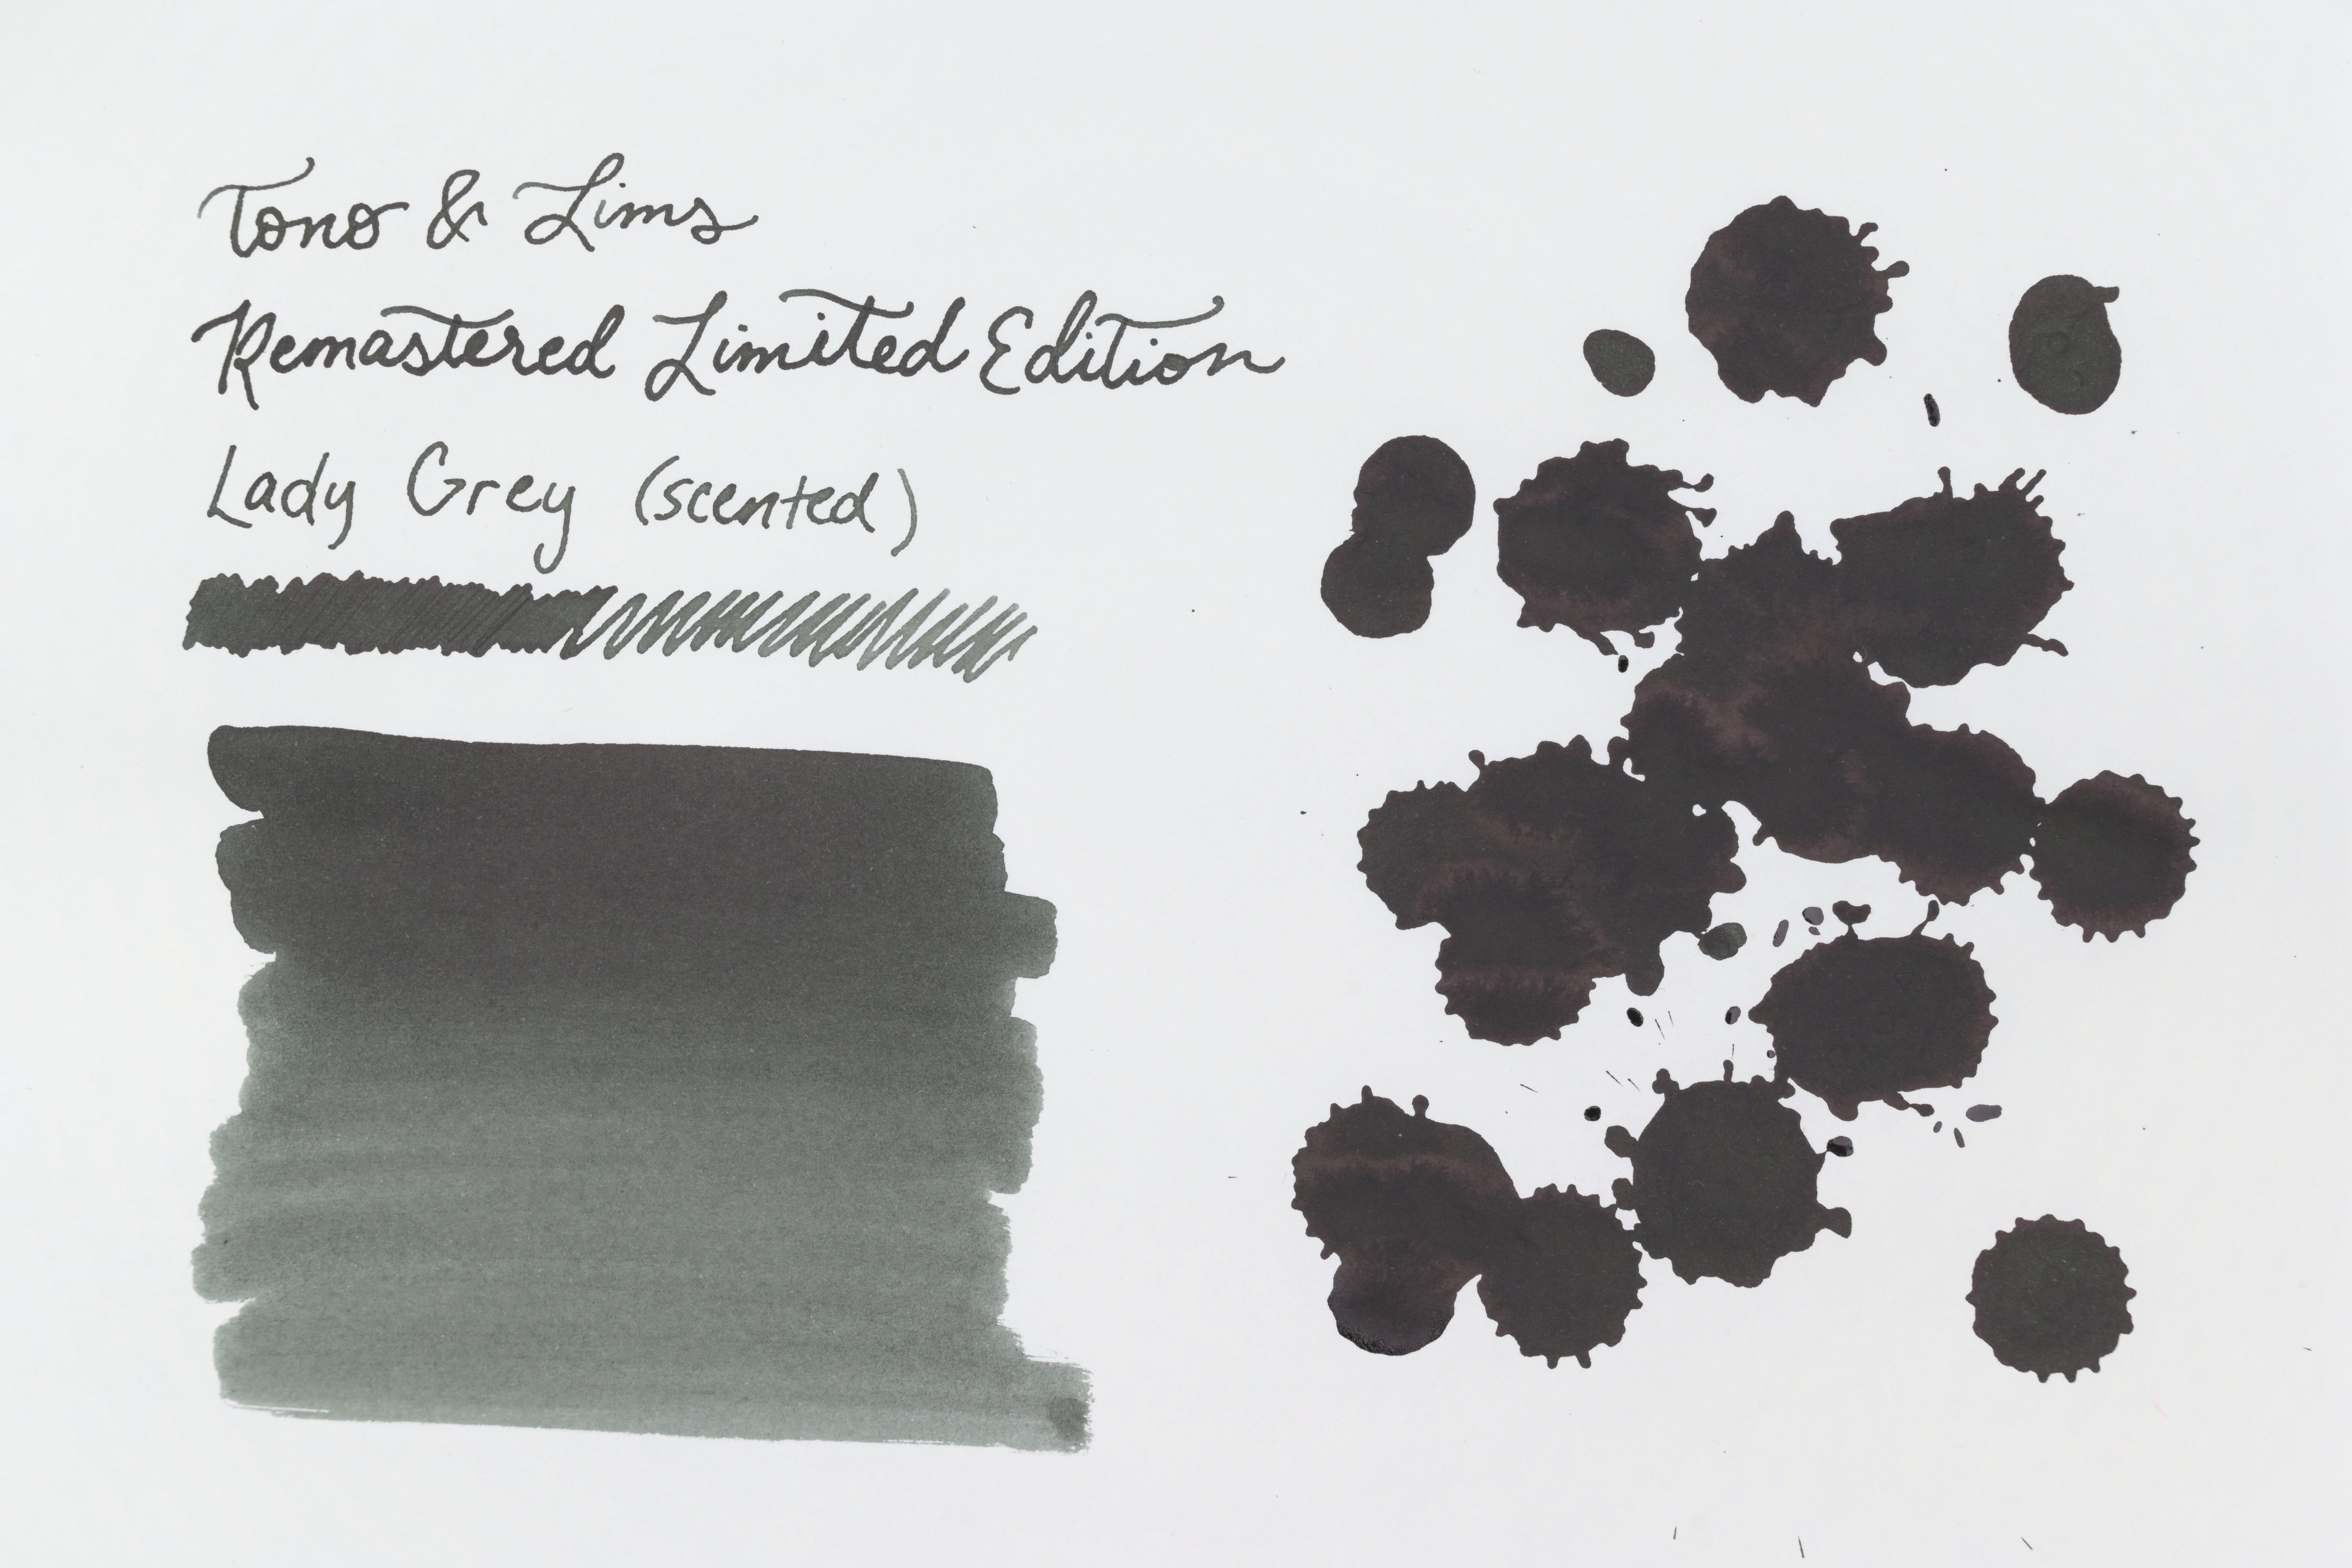 Tono & Lims
Remastered Limited Edition
Lady Grey (scented)